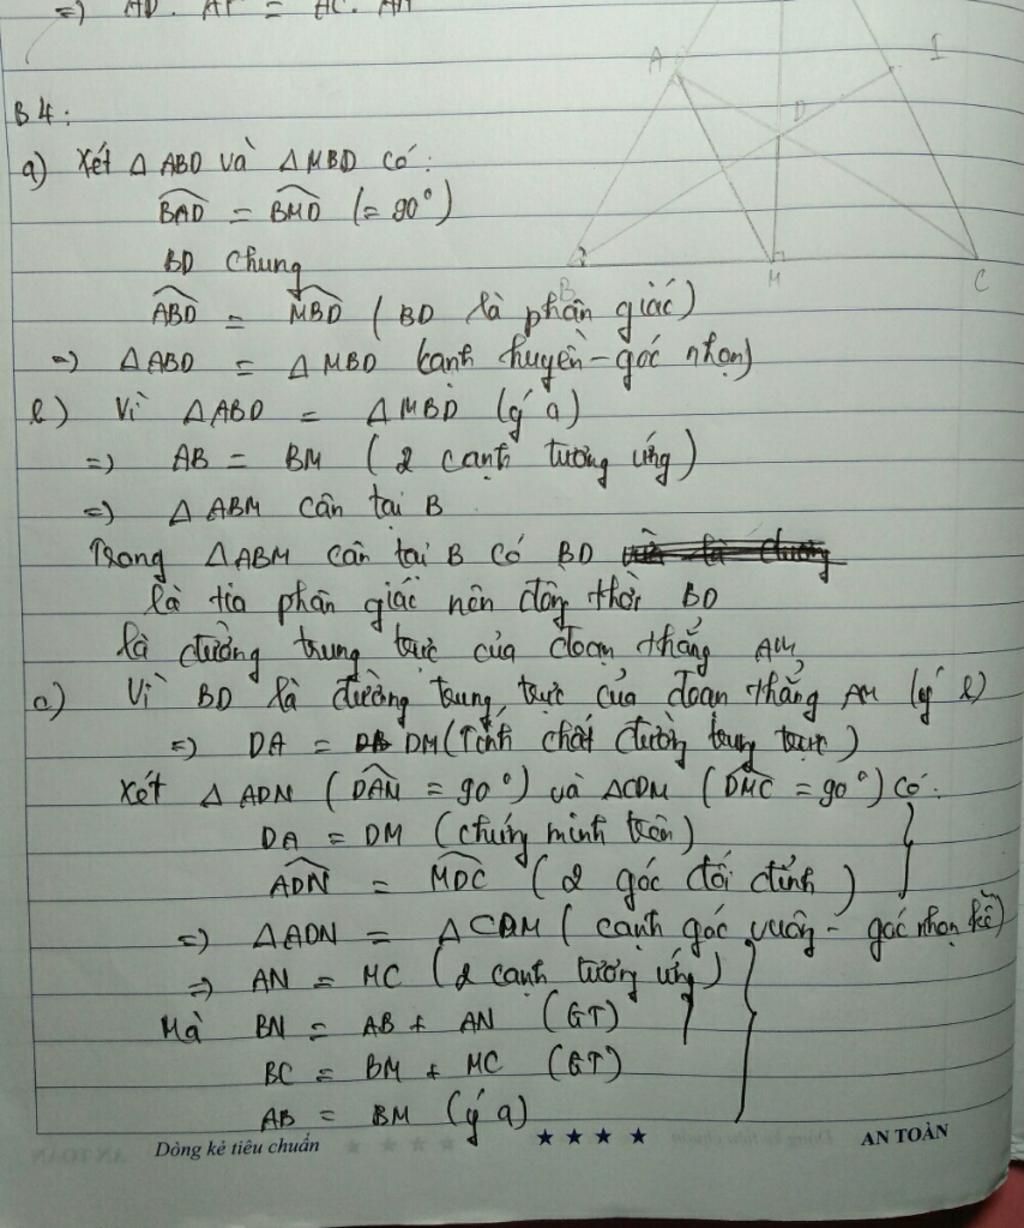 =) AD. AF = AC. AM
A
I
D
B
M
C
B4:
a) Xét △ABD và △MBD có:
BAD = BMD (= 90°)
BD chung
ABD = MBD (BD là phân giác)
=) △ABD = △MBD (cạnh huyền-góc nhọn)
b) Vì △ABD = △MBD (ý a)
=) AB = BM (2 cạnh tương ứng)
=) △ABM cân tại B
Trong △ABM cân tại B có BD
là tia phân giác nên đồng thời BD
là đường trung trực của đoạn thẳng AM
c) Vì BD là đường trung trực của đoạn thẳng AM (ý b)
=) DA = DM (Tính chất đường trung trực)
Xét △ADN (DAN = 90°) và △CDM (DMC = 90°) có:
DA = DM (chứng minh trên)
ADN = MDC (2 góc đối đỉnh)
=) △ADN = △CDM (cạnh góc vuông - góc nhọn kề)
=) AN = MC (2 cạnh tương ứng)
Mà BN = AB + AN (GT)
BC = BM + MC (GT)
AB = BM (ý a)
Dòng kẻ tiêu chuẩn ★ ★ ★ ★ AN TOÀN